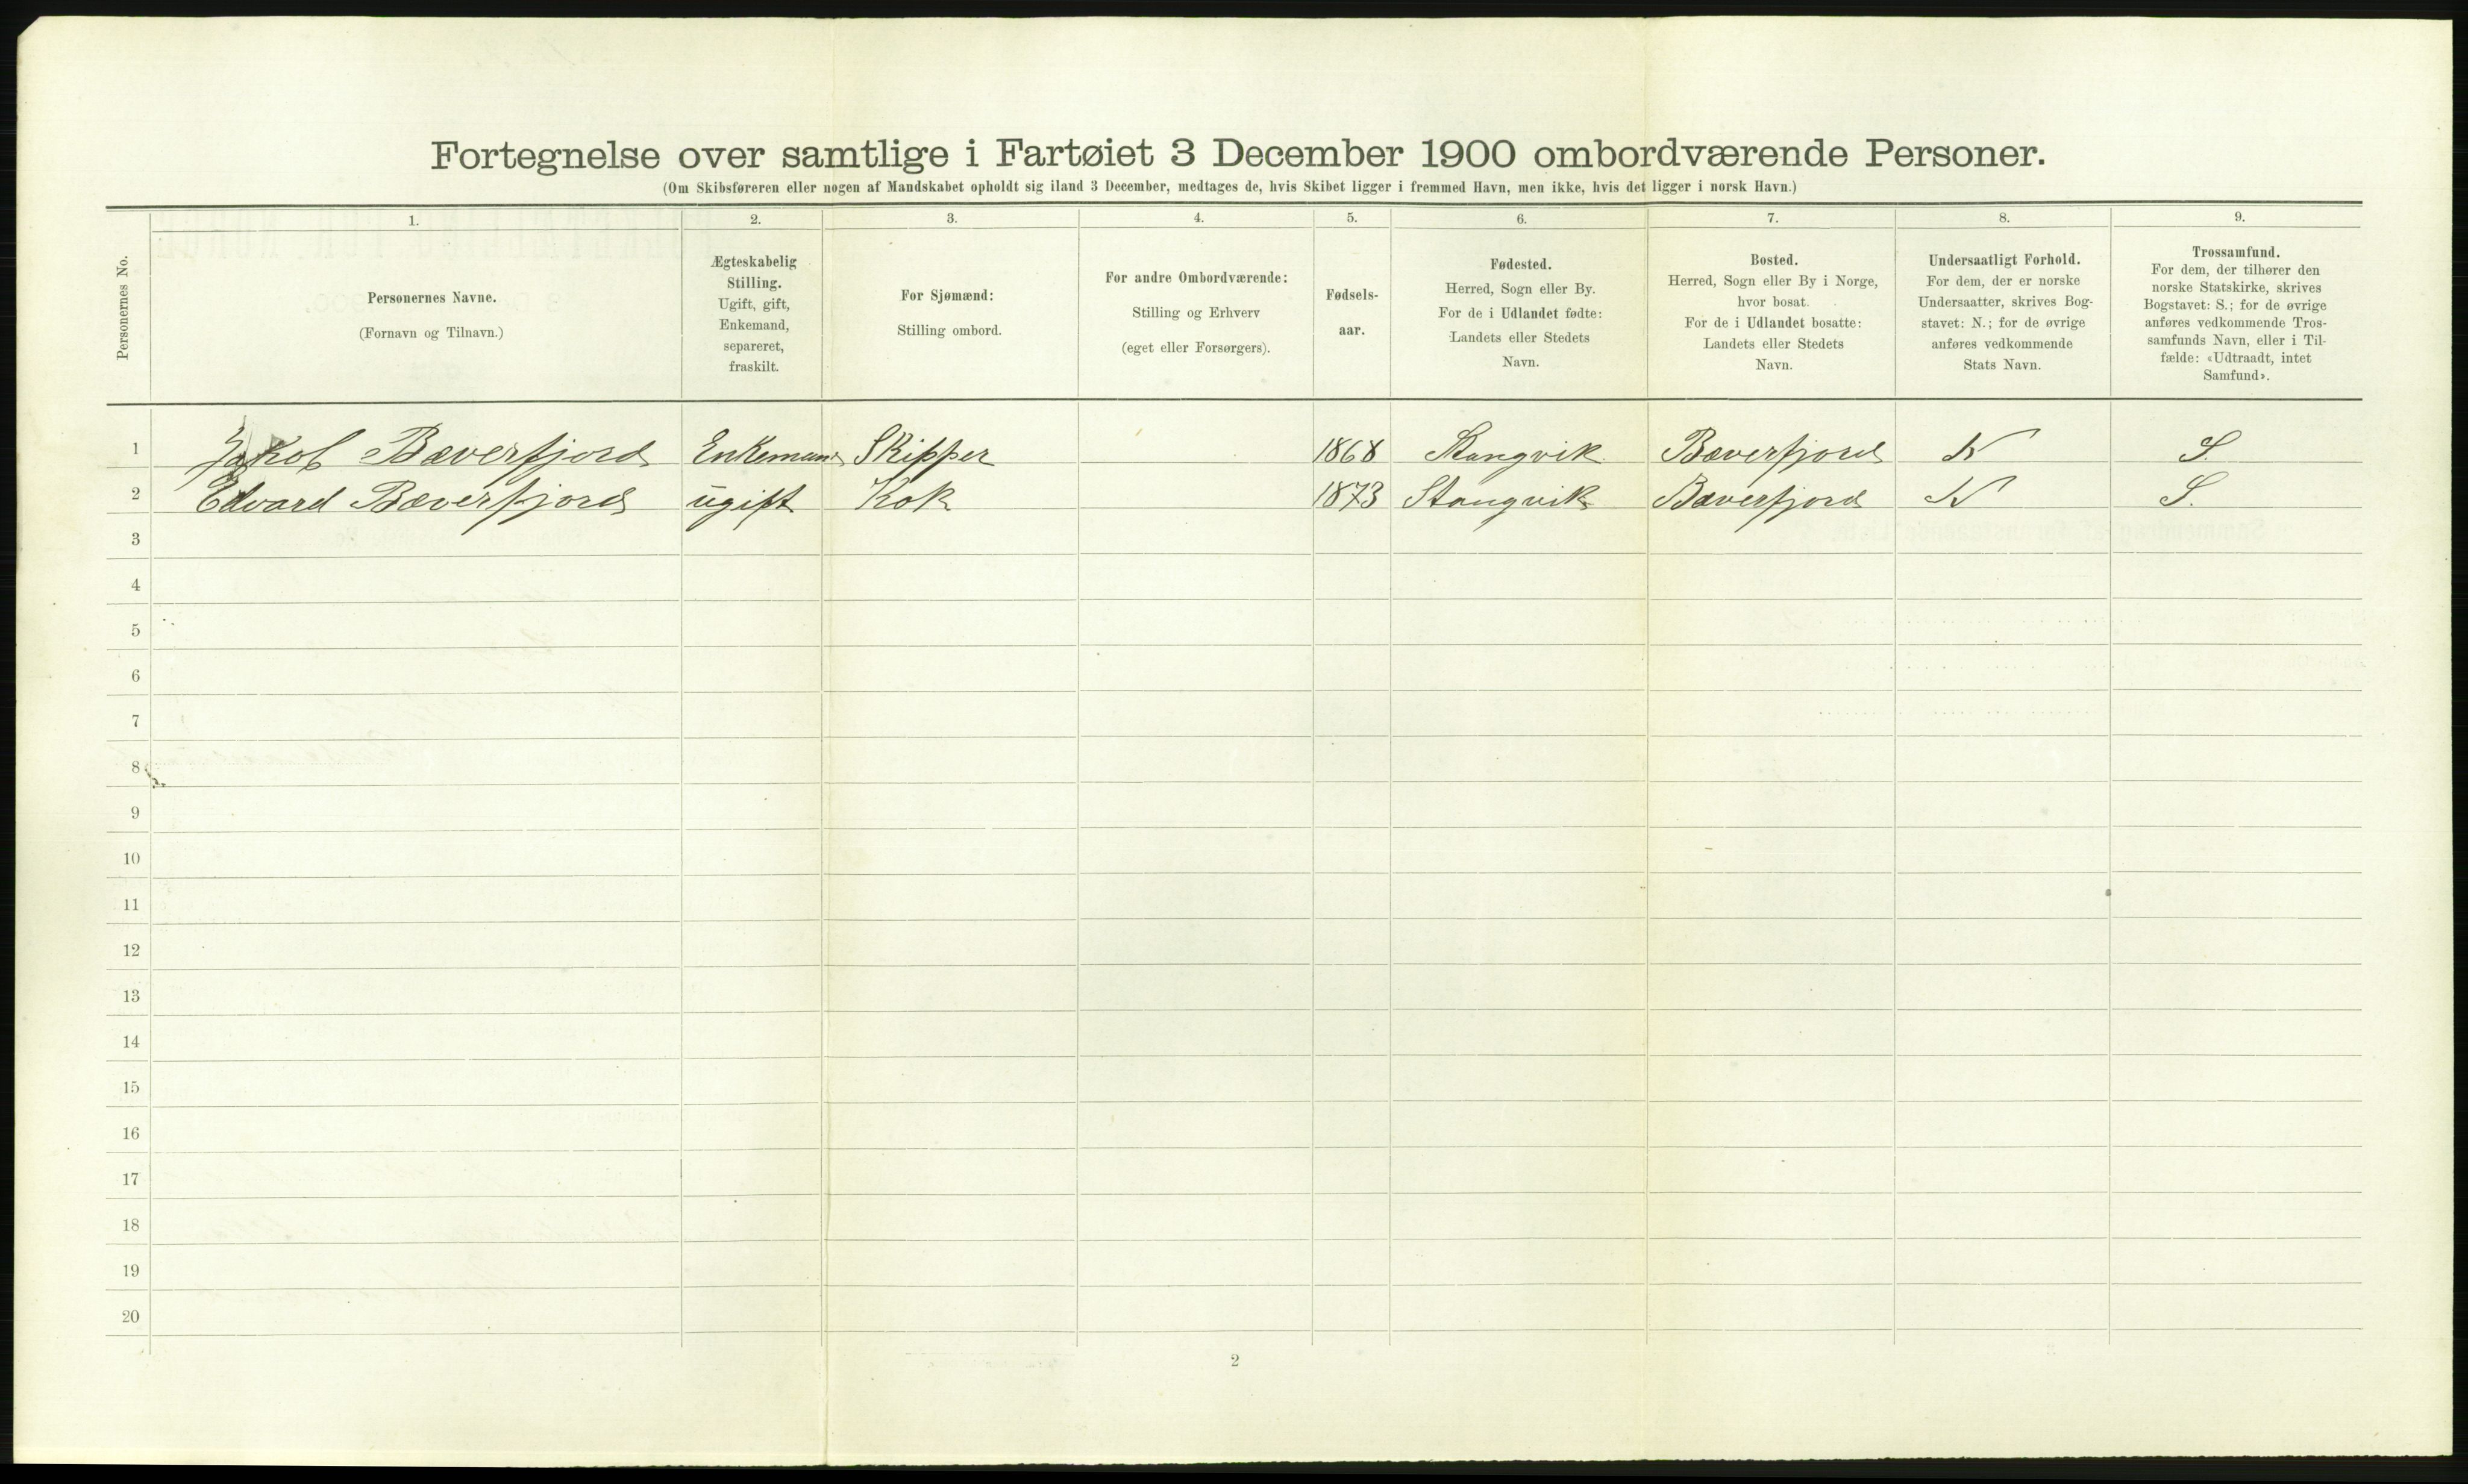 Fortegnelse over samtlige i Fartøiet 3 December 1900 ombordværende Personer.
(Om Skibsføreren eller nogen af Mandskabet opholdt sig iland 3 December, medtages de, hvis Skibet ligger i fremmed Havn, men ikke, hvis det ligger i norsk Havn.)
Personernes No.
1.
Personernes Navne.
(Fornavn og Tilnavn.)
2.
Ægteskabelig
Stilling.
Ugift, gift,
Enkemand,
separeret,
fraskilt.
3.
For Sjømænd:
Stilling ombord.
4.
For andre Ombordværende:
Stilling og Erhverv
(eget eller Forsørgers).
5.
Fødsels-
aar.
6.
Fødested.
Herred, Sogn eller By.
For de i Udlandet fødte:
Landets eller Stedets
Navn.
7.
Bosted.
Herred, Sogn eller By i Norge,
hvor bosat.
For de i Udlandet bosatte:
Landets eller Stedets
Navn.
8.
Undersaatligt Forhold.
For dem, der er norske
Undersaatter, skrives Bog-
stavet: N.; for de øvrige
anføres vedkommende
Stats Navn.
9.
Trossamfund.
For dem, der tilhører den
norske Statskirke, skrives
Bogstavet: S.; for de øvrige
anføres vedkommende Tros-
samfunds Navn, eller i Til-
fælde: «Udtraadt, intet
Samfund».
1 Jakob Bæverfjord Enkemand Skipper 1868 Stangvik Bæverfjord N S
2 Edvard Bæverfjord ugift Kok 1873 Stangvik Bæverfjord N S.
3
4
5
6
7
8
9
10
11
12
13
14
15
16
17
18
19
20
2